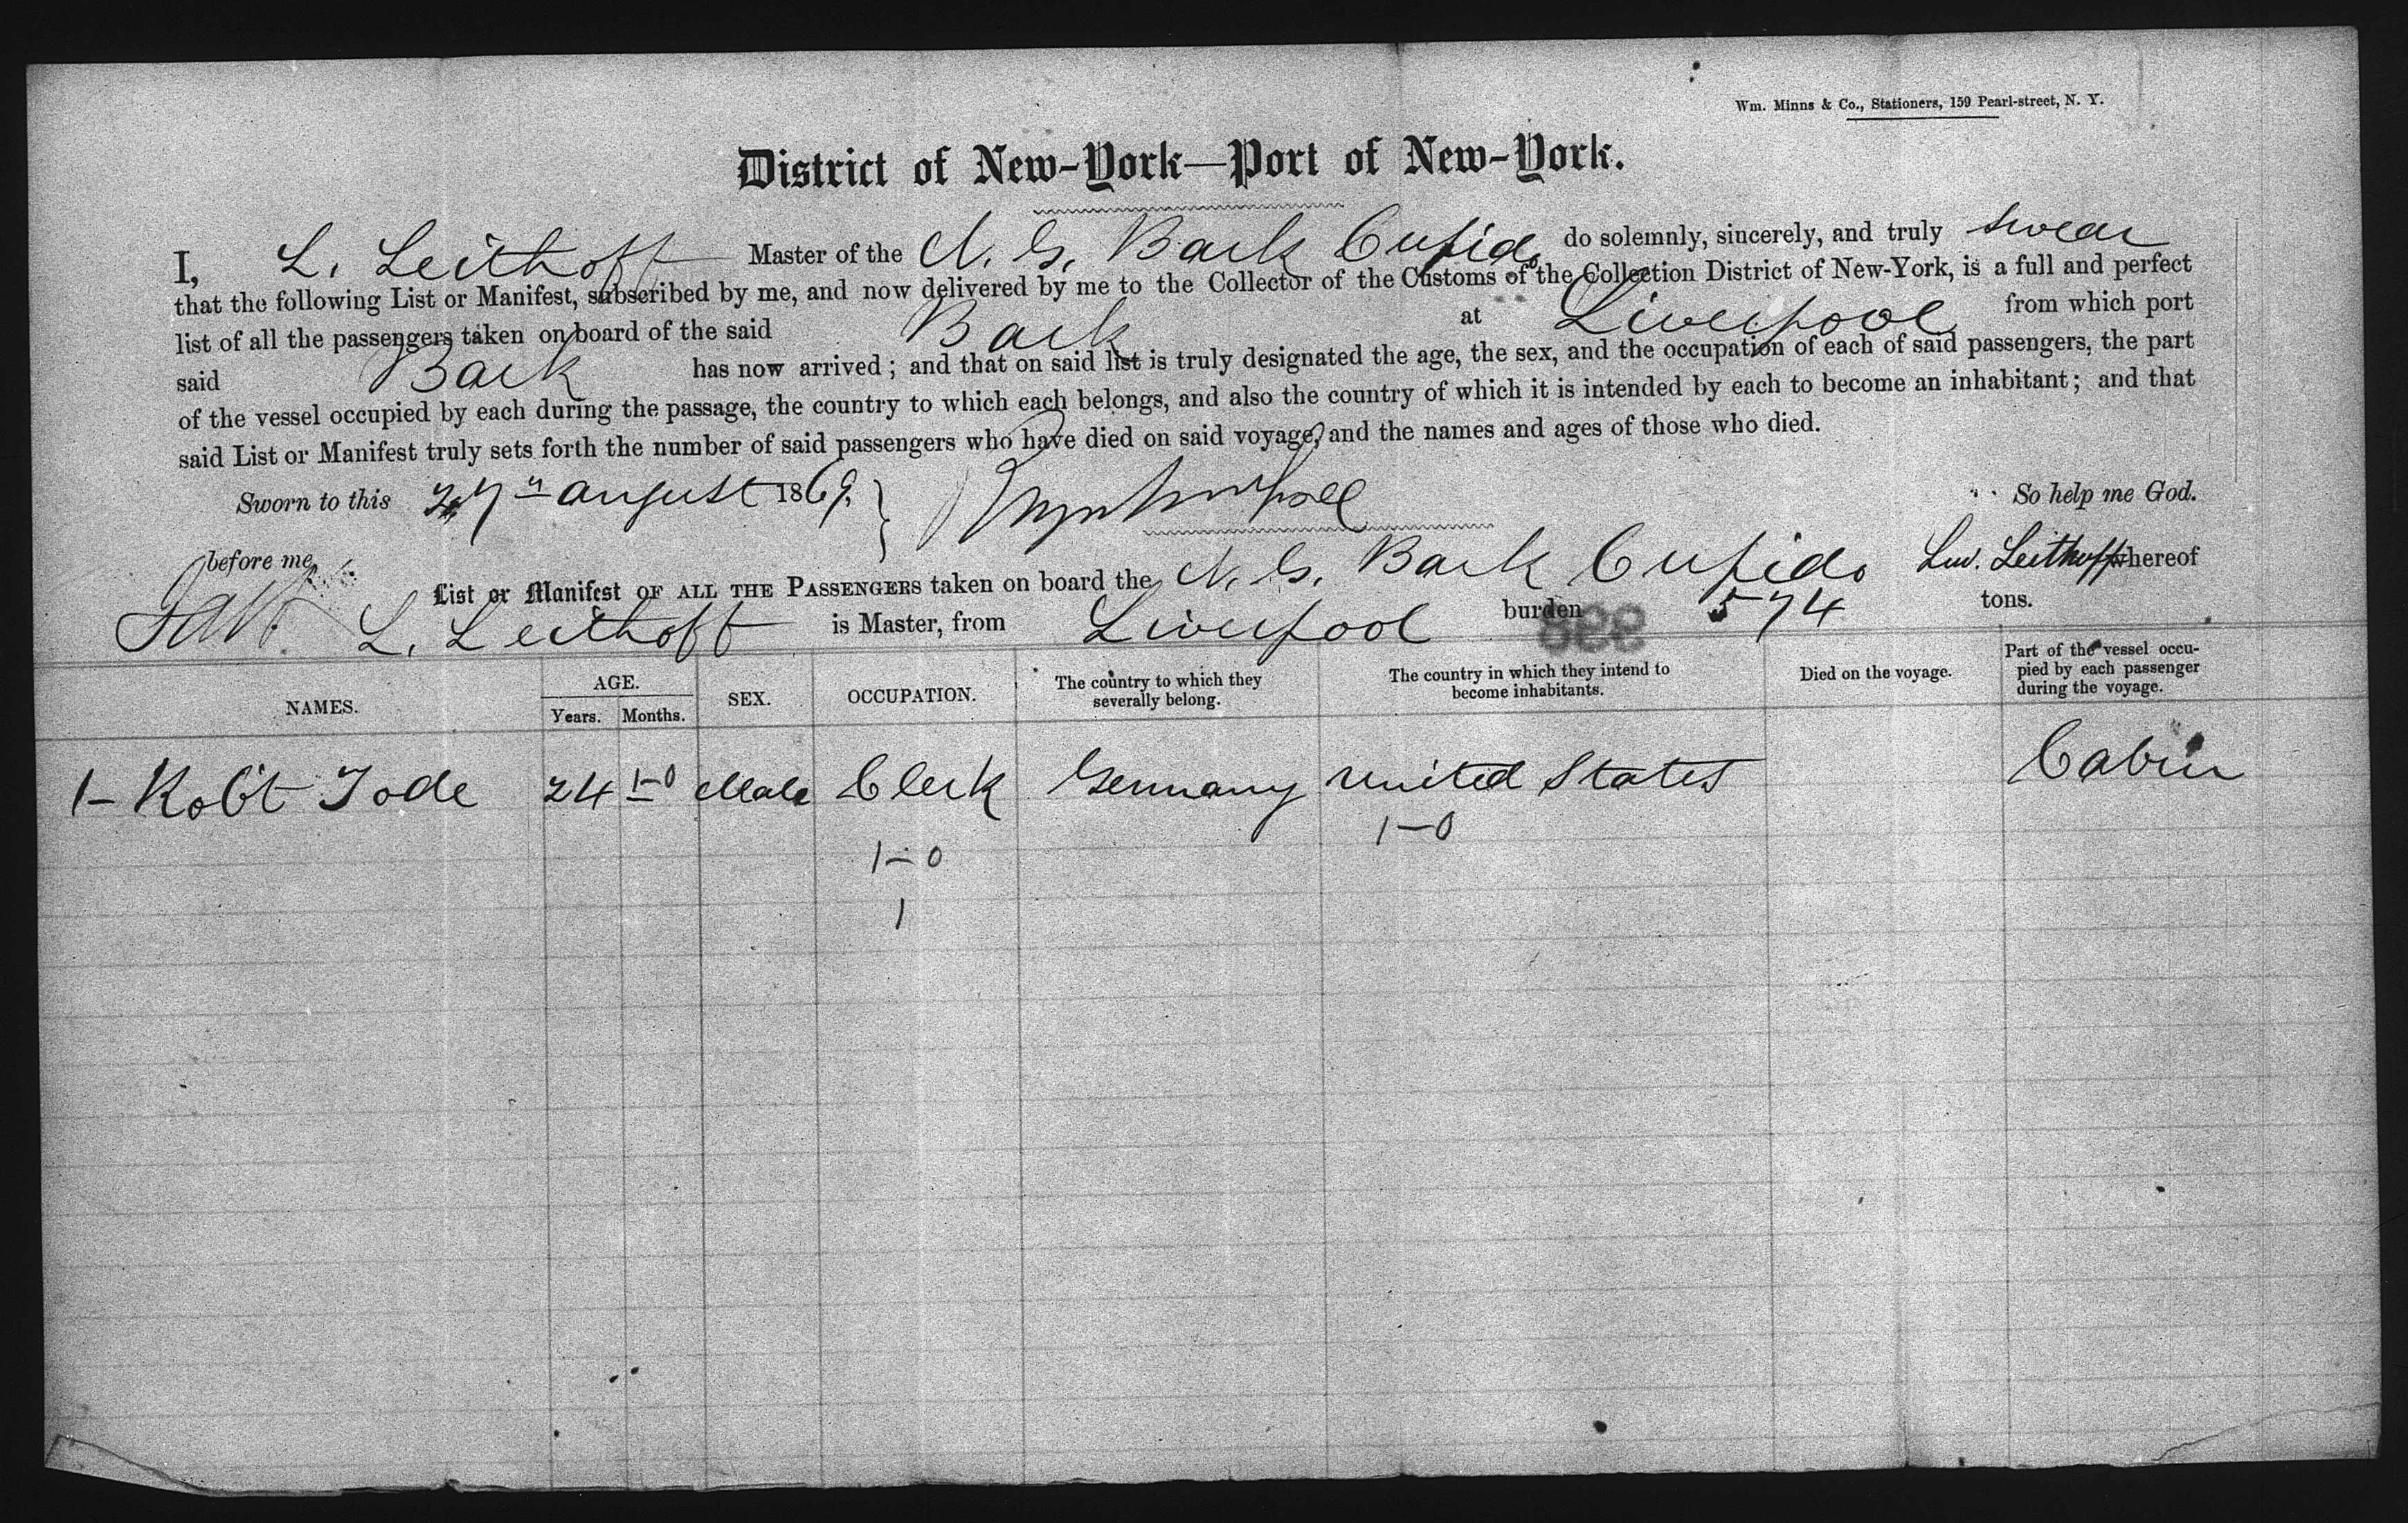 Wm. Minns & Co., Stationers, 159 Pearl-street, N. Y.
District of New-York—Port of New-York.
I, L. Leithoff Master of the N. G. Bark Cupido do solemnly, sincerely, and truly swear
that the following List or Manifest, subscribed by me, and now delivered by me to the Collector of the Customs of the Collection District of New-York, is a full and perfect
list of all the passengers taken on board of the said Bark at Liverpool from which port
said Bark has now arrived; and that on said list is truly designated the age, the sex, and the occupation of each of said passengers, the part
of the vessel occupied by each during the passage, the country to which each belongs, and also the country of which it is intended by each to become an inhabitant; and that
said List or Manifest truly sets forth the number of said passengers who have died on said voyage, and the names and ages of those who died.
Sworn to this 27" august 1869. So help me God.
before me, Luv. Leithoff
List or Manifest OF ALL THE PASSENGERS taken on board the N. G. Bark Cupido whereof
L. Leithoff is Master, from Liverpool burden 574 tons.
NAMES. AGE. Years. Months. SEX. OCCUPATION. The country to which they severally belong. The country in which they intend to become inhabitants. Died on the voyage. Part of the vessel occu-pied by each passenger during the voyage.
1- Robt Tode 24 1-0 Male Clerk Germany United States Cabin
1-0
1-0
1